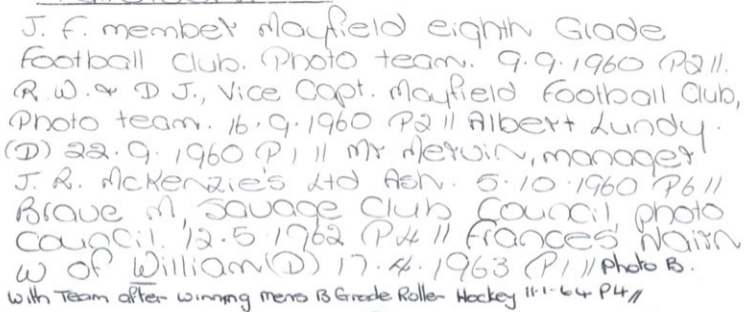 J. F. member Mayfield eighth Grade
Football Club. Photo team. 9.9.1960 P2//.
R.W. & D J., Vice Capt. Mayfield Football Club,
Photo team. 16.9.1960 P2 // Albert Lundy.
(D) 22.9.1960 P1 // Mr Mervin, manager
J. R. McKenzie's Ltd Ash. 5.10.1960 P6 //
Brave M, Savage Club Council photo
Council. 12.5.1962 P4 // Frances Nairn
w of William (D) 17.4.1963 P1 // Photo B.
with Team after winning mens B Grade Roller Hockey 11.1.64 P4 //